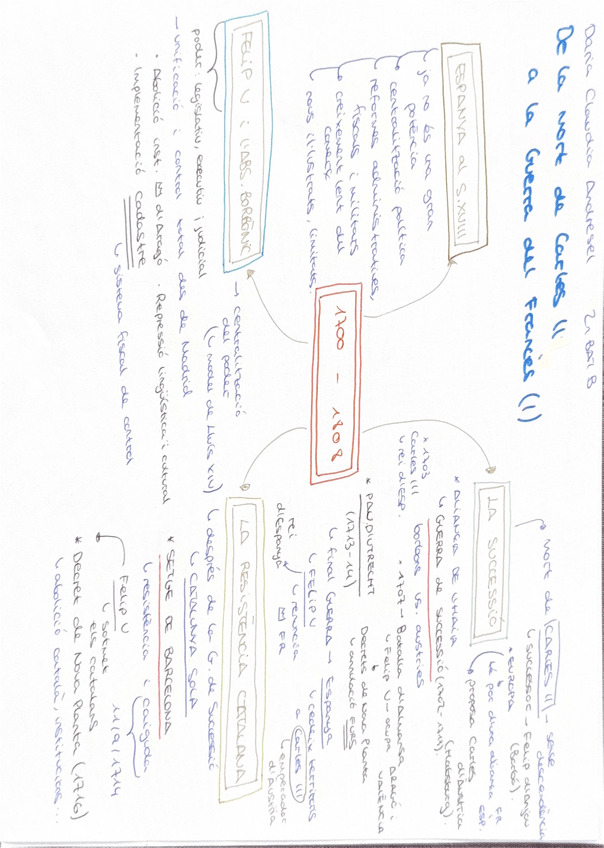 Daria Claudia Andresel 2n BAT B
De la mort de Carles II
a la Guerra del Francès (I)
1700 - 1808
ESPANYA al S.XVIII
ja no és una gran
potència
centralització política
reformes administratives,
fiscals i militars
creixement lent del
comerç
nous il·lustrats, limitats.
FELIP V i l'ABS. BORBÒNIC
→ centralització
del poder
(↳ model de Lluís XIV)
poder: legislatiu, executiu i judicial
→ unificació i control total des de Madrid
• Abolició inst. d'Aragó • Repressió lingüística i cultural
• Implementació Cadastre
↳ sistema fiscal de control
LA SUCCESSIÓ
Mort de CARLES II - sense
descendència
↳ successor - Felip d'Anjou
(Borbó).
* EUROPA
té por d'una aliança FR
ESP.
↳ proposa Carles
d'Àustria
(Habsburg).
* ALIANÇA DE L'HAIA
↳ GUERRA de SUCCESSIÓ (1702-1714).
borbons vs. austricis
* 1703
Carles III
↳ rei d'ESP.
* 1707 - Batalla d'Almansa
↳ Felip V - ocupa ARAGÓ i
VALÈNCIA
Decrets de Nova Planta
↳ anul·lació FURS
* PAU D'UTRECHT
(1713-14)
↳ final GUERRA → Espanya
↳ cedeix territoris
a Carles III
↳ emperador
d'Àustria
↳ FELIP V
↳ renuncia
FR
rei
d'Espanya
LA RESISTÈNCIA CATALANA
↳ després de la G. de Successió
↳ CATALUNYA SOLA
* SETGE DE BARCELONA
↳ resistència i Caiguda
11/9/1714
Felip V
↳ sotmet
els catalans
* Decret de Nova Planta (1716)
↳ abolició català, institucions...